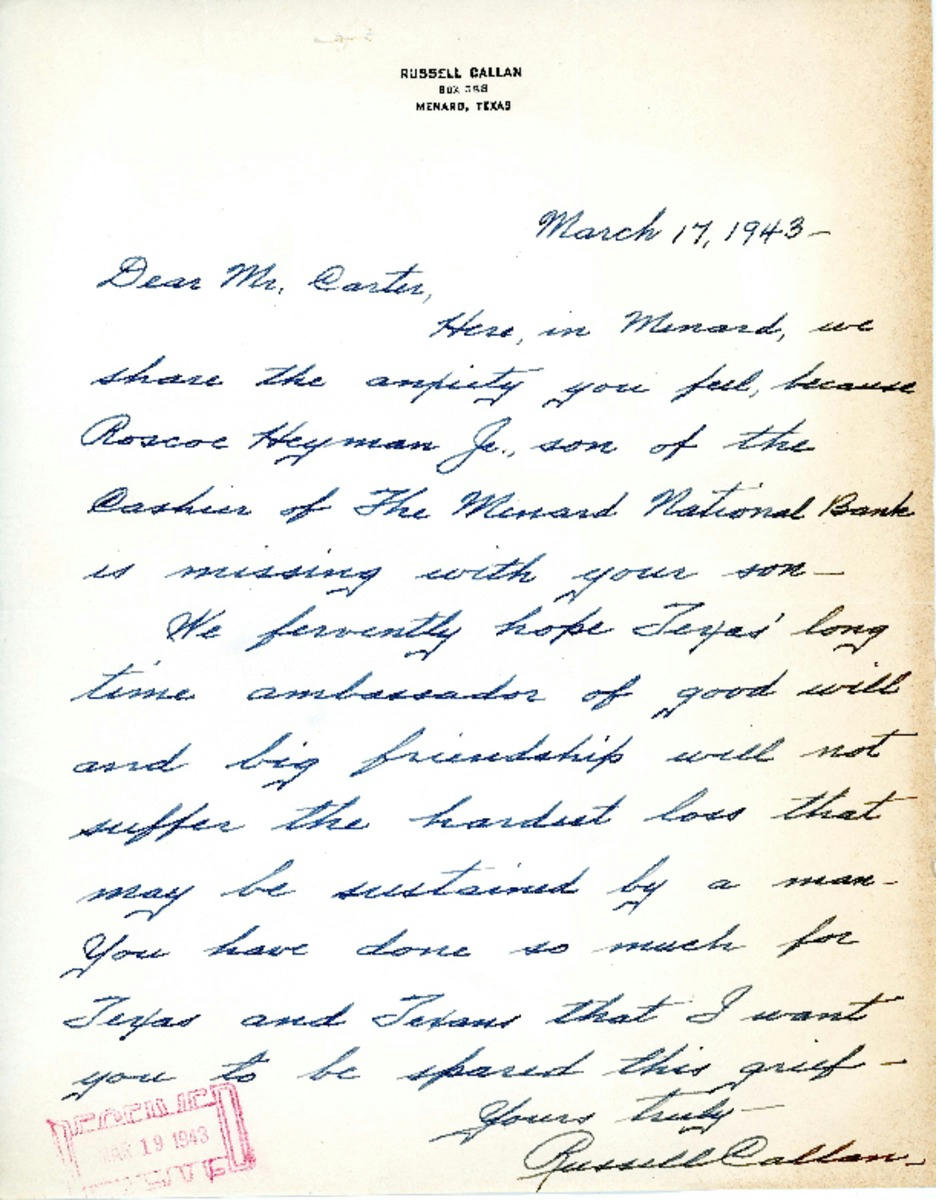 RUSSELL CALLAN
BOX
MENARD, TEXAS
March 17, 1943-
Dear Mr. Carter,
Here, in Menard, we
share the anxiety you feel, because
Roscoe Heyman Jr., son of the
Cashier of The Menard National Bank
is missing with your son-
We fervently hope Texas' long
time ambassador of good will
and big friendship will not
suffer the hardest loss that
may be sustained by a man-
You have done so much for
Texas and Texans that I want
you to be spared this grief-
Yours truly-
Russell Callan.
RECEIVED
MAR 19 1943